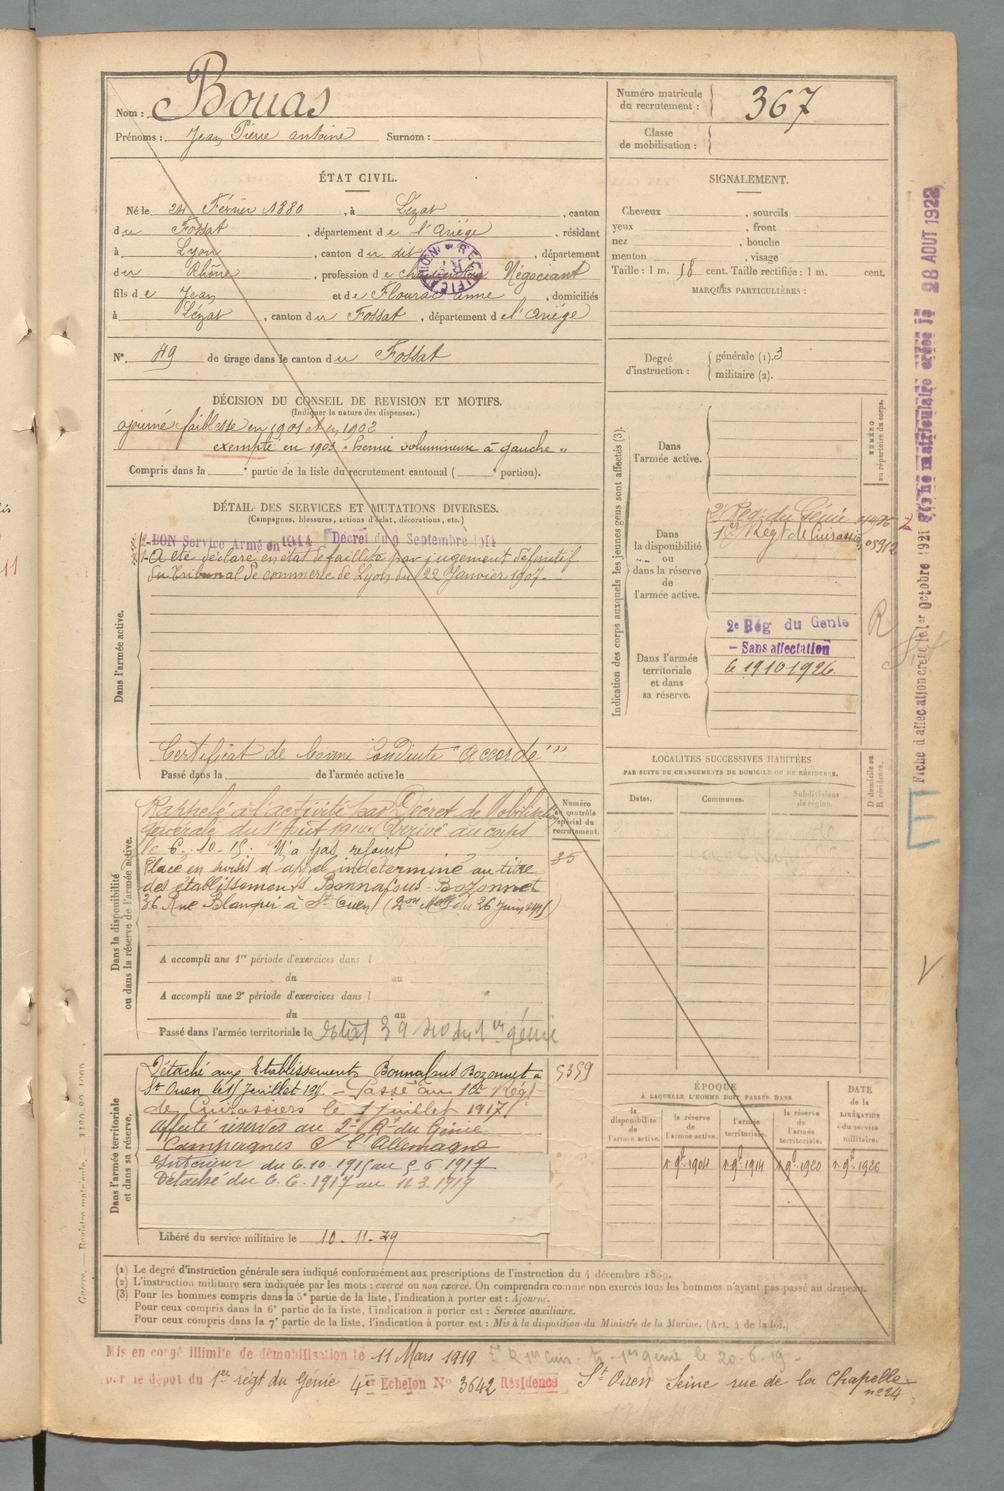 Nom : Bouas
Prénoms : Jean Pierre antoine Surnom :
Numéro matricule du recrutement : 367
Classe de mobilisation :
ÉTAT CIVIL.
Né le 24 Février 1880, à Lézat, canton
du Fossat, département de l'Ariège, résidant
à Lyon, canton du dit, département
du Rhône, profession de Négociant
fils de Jean et de Flourac anne, domiciliés
à Lézat, canton du Fossat, département de l'Ariège
N° 49 de tirage dans le canton du Fossat
SIGNALEMENT.
Cheveux , sourcils
yeux , front
nez , bouche
menton , visage
Taille : 1 m. 58 cent. Taille rectifiée : 1 m. cent.
MARQUES PARTICULIÈRES :
Degré d'instruction : générale (1). 3
militaire (2).
DÉCISION DU CONSEIL DE REVISION ET MOTIFS.
(Indiquer la nature des dispenses.)
ajourné faiblesse en 1901 et en 1902
exempté en 1903 "hernie volumineuse à gauche"
Compris dans la e partie de la liste du recrutement cantonal ( e portion).
DÉTAIL DES SERVICES ET MUTATIONS DIVERSES.
(Campagnes, blessures, actions d'éclat, décorations, etc.)
BON Service Armé en 1914 Décret du 9 Septembre 1914
A été déclaré en état de faillite par jugement définitif
du Tribunal de commerce de Lyon du 22 Janvier 1907.
Dans l'armée active.
Certificat de bonne Conduite "accordé"
Passé dans la de l'armée active le
Indication des corps auxquels les jeunes gens sont affectés (3).
Dans l'armée active.
NUMÉRO au répertoire du corps.
Dans la disponibilité ou dans la réserve de l'armée active.
2e Rég. du Génie
1er Régt de Cuirassiers
Dans l'armée territoriale et dans sa réserve.
2e Rég du Génie
Sans affectation
le 19.10.1926.
LOCALITÉS SUCCESSIVES HABITÉES
PAR SUITE DE CHANGEMENTS DE DOMICILE OU DE RÉSIDENCE.
Dates. Communes. Subdivisions de région. D domicile ou R résidence.
Dans la disponibilité ou dans la réserve de l'armée active.
Numéro au contrôle spécial du recrutement.
Rappelé à l'activité par Décret de Mobilisation
générale du 1er Août 1914. Arrivé au corps
le 6.10.15. N'a pas rejoint
Placé en sursis d'appel indéterminé au titre
des établissements Bonnafous-Bozonnet
36 Rue Blanqui à St Ouen
35
A accompli une 1re période d'exercices dans l
du au
A accompli une 2e période d'exercices dans l
du au
Passé dans l'armée territoriale le
Dans l'armée territoriale et dans sa réserve.
Détaché aux Etablissements Bonnafous Bozonnet à
St Ouen le 1er Juillet 191 . Passé au 1er Régt
de Cuirassiers le 1 juillet 1917
affecté réserves au 2e R. du Génie
Campagnes C/ l'Allemagne
Intérieur du 6.10.1915 au 5.6.1917
Détaché du 6.6.1917 au 11.3.1919
5359
Libéré du service militaire le 10-11-29
ÉPOQUE
À LAQUELLE L'HOMME DOIT PASSER DANS
la disponibilité de l'armée active. la réserve de l'armée active. l'armée territoriale. la réserve de l'armée territoriale.
DATE de la LIBÉRATION du service militaire.
1er 9bre 1904 1er 9bre 1914 1er 9bre 1920 1er 9bre 1926
(1) Le degré d'instruction générale sera indiqué conformément aux prescriptions de l'instruction du 4 décembre 1889.
(2) L'instruction militaire sera indiquée par les mots : exercé ou non exercé. On comprendra comme non exercés tous les hommes n'ayant pas passé au drapeau.
(3) Pour les hommes compris dans la 5e partie de la liste, l'indication à porter est : Ajourné.
Pour ceux compris dans la 6e partie de la liste, l'indication à porter est : Service auxiliaire.
Pour ceux compris dans la 7e partie de la liste, l'indication à porter est : Mis à la disposition du Ministre de la Marine. (Art. 4 de la loi.)
Mis en congé illimité de démobilisation le 11 Mars 1919
par le dépôt du 1er régt du Génie 4e Echelon N° 3642 Résidence St Ouen Seine rue de la Chapelle
n° 24
Fiche d'affectation créée le 1er Octobre 1921
Fiche matriculaire créée le 28 AOUT 1922